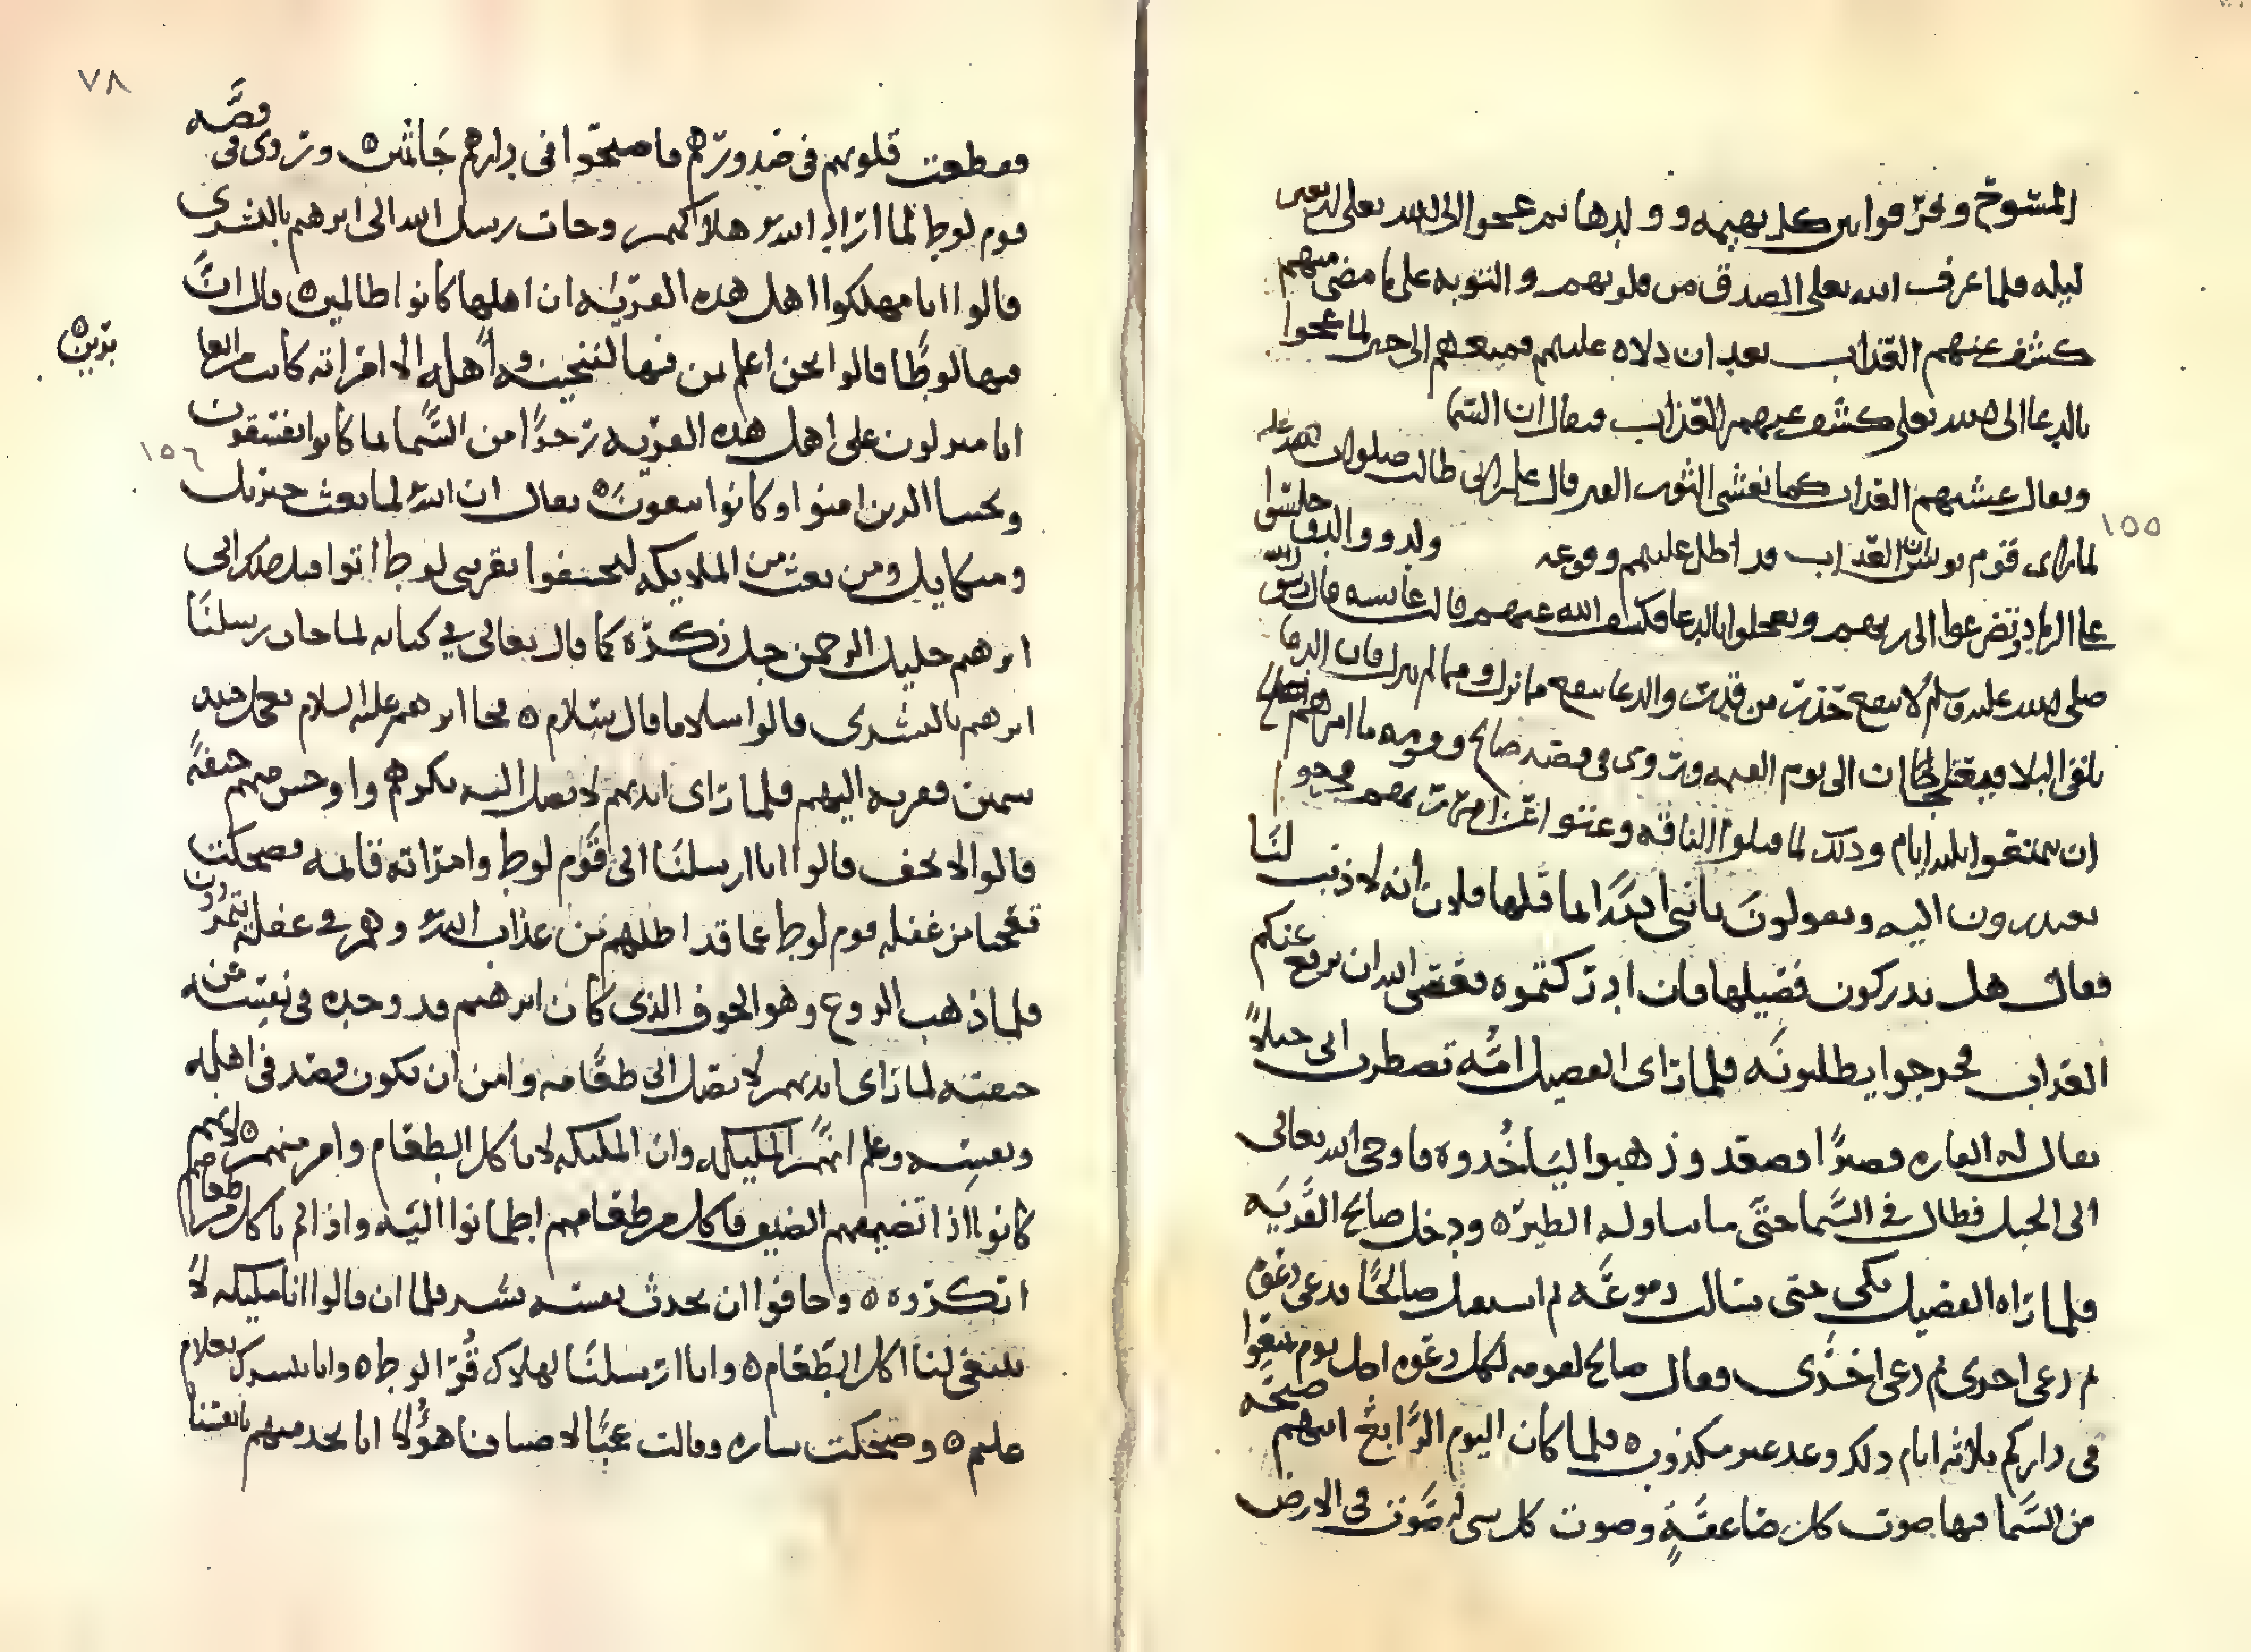 المسوح وفرقوا بين كل بهيمة وولدها ثم عجوا الى الله تعلى اربعين
ليله فلما عرف الله تعلى الصدق من قلوبهم والتوبه على ما مضى منهم
كشف عنهم العذاب بعد ان دلاه عليهم ومتعهم الى حين لما عجوا
بالدعا الى الله تعلى كشف عنهم العذاب فيقال ان السما
ويقال غشيهم العذاب كما يغشى الثوب القبر قال على بن ابي طالب صلوات الله عليه
١٥٥
لما راى قوم يونس ان العذاب قد اطل عليهم ووقوعه
الى ربهم وتعجلوا بالدعا فكشف الله عنهم قالت عايشه قال رسول الله
صلى الله عليه وسلم لا ينفع حذر من قدر والدعا ينفع مما نزل ومما لم ينزل فان الدعا
يلقى البلا فيعتلجان الى يوم القيمه وتروى في قصه صالح وقومه ما امرهم صالح
ان يتمتعوا ثلثه ايام وذلك لما قتلوا الناقه وعتوا عن امر ربهم فخرجوا
يعتدرون اليه ويقولون يا نبى الله انما قتلها فلان انه لا ذنب لنا
فقال هل تدركون فصيلها فان ادركتموه فعسى الله ان يرفع عنكم
العذاب فخرجوا يطلبونه فلما راى الفصيل امه تضطرب اتى جبلا
يقال له القاره قصيرا فصعد وذهبوا لياخذوه فاوحى الله تعالى
الى الجبل فطال في السما حتى ما يناوله الطير ٥ ودخل صالح القريه
فلما راه الفصيل بكى حتى سالت دموعه ثم استقبل صالحا فدعى دعوه
ثم دعى اخرى ثم دعى اخرى فقال صالح لقومه لكل دعوه اجل يوم تمتعوا
في داركم ثلاثه ايام ذلك وعد غير مكذوب ٥ فلما كان اليوم الرابع اتتهم صيحه
من السما فيها صوت كل صاعقة وصوت كل شى له صوت فى الارض
٧٨
فقطعت قلوبهم فى صدورهم فاصبحوا فى دارهم جاثمين ٥ وتروى فى قصه
قوم لوط لما اراد الله هلاكهم وجات رسل الله الى ابرهيم بالبشرى
قالوا انا مهلكوا اهل هذه القريه ان اهلها كانوا ظالمين ٥ قال ان
فيها لوطا قالوا نحن اعلم بمن فيها لننجينه واهله الا امراته كانت من الغا
برين ٥
انا منزلون على اهل هذه القريه رجزا من السما بما كانوا يفسقون
١٥٦
ونجينا الذين امنوا وكانوا يتقون ٥ يقال ان الله لما بعث جبريل
وميكايل ومن بعث من الملايكه ليخسفوا بقرى لوط اتوا قبل ذلك الى
ابرهيم خليل الرحمن جل ذكره كما قال تعالى في كتابه لما جات رسلنا
ابرهيم بالبشرى قالوا سلاما قال سلام ٥ فجا ابرهيم عليه السلام بعجل حنيد
سمين فقربه اليهم فلما راى ايديهم لا تصل اليه نكرهم واوجس منهم خيفة
قالوا لا تخف قالوا انا ارسلنا الى قوم لوط وامراته قايمه فضحكت
تعجبا من غفله قوم لوط عما قد اطلهم من عذاب الله وهم في غفله
فلما ذهب الروع وهو الخوف الذى كان ابرهيم قد وجده فى نفسه من
خيفته لما راى ايديهم لا تصل الى طعامه وامن ان تكون قصد فى اهله
ونفسه وعلم انهم الملايكه وان الملايكه لا تاكل الطعام وامر منهم ٥ لانهم
كانوا اذا تضيفهم الضيف فاكل من طعامهم اطمانوا اليه واذا لم ياكل من طعامهم
انكروه ٥ وخافوا ان يحدث نفسه بشر فلما ان قالوا انا ملايكه لا
ينبغى لنا اكل الطعام ٥ وانا ارسلنا لهلاك قرا لوط ٥ وانا نبشرك بغلام
عليم ٥ وضحكت ساره وقالت عجبا لاضيافنا هؤلا انا نخدمهم بانفسنا